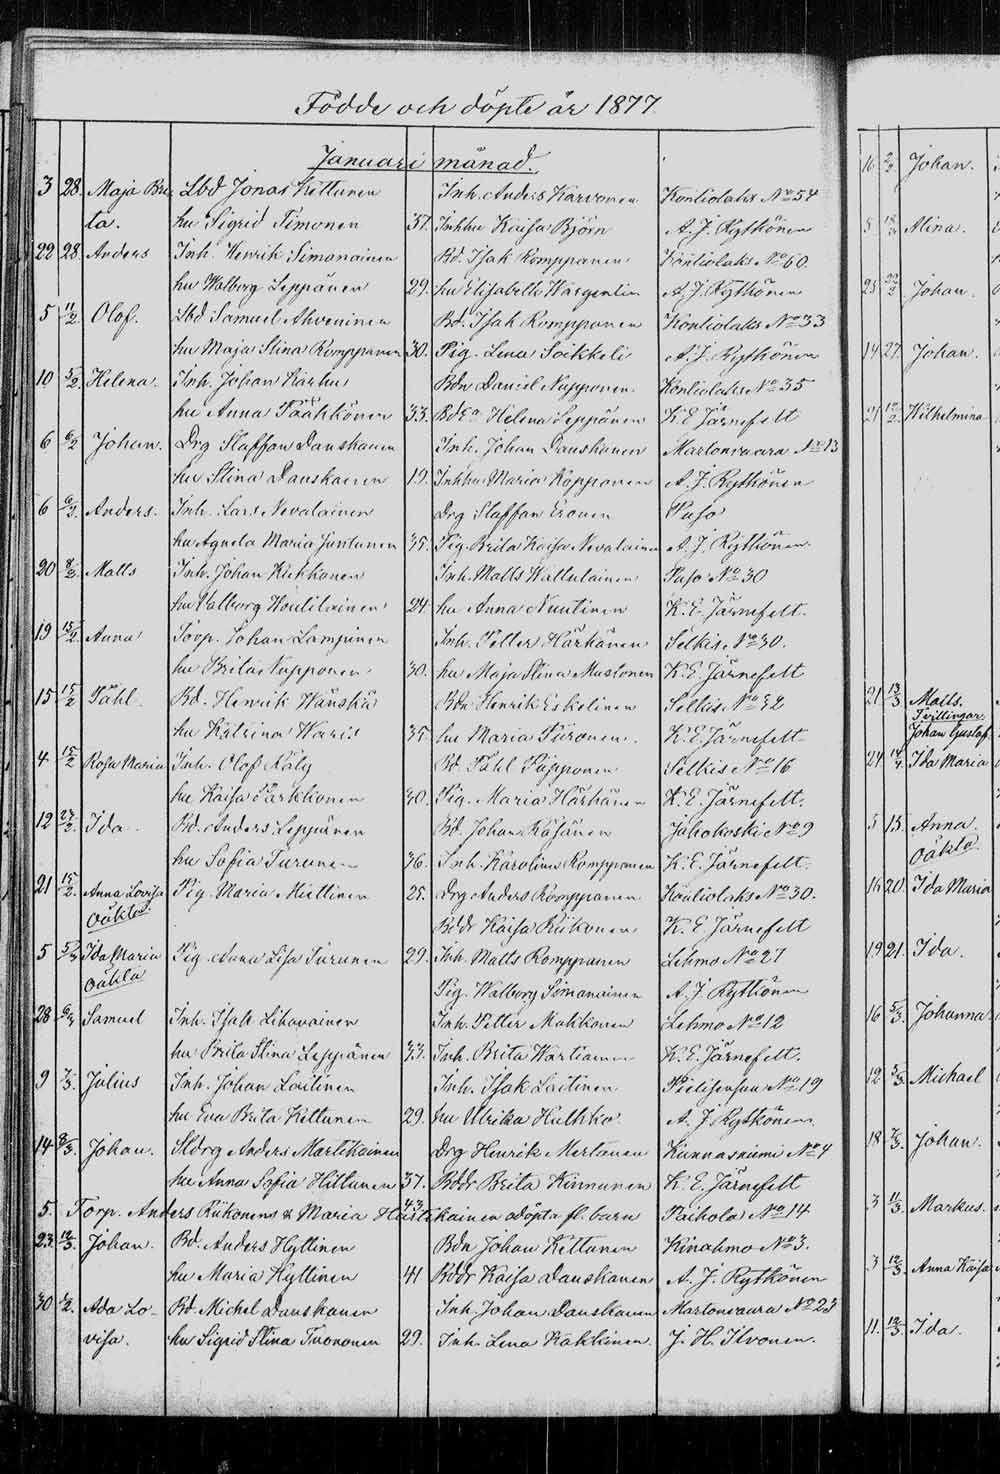 Födde och döpte år 1877.
Januari månad.
3 28. Maja Bri- Lbd Jonas Kettunen Inh. Anders Karvonen Kontiolaks No 54
ta. hu Sigrid Timonen 37. Inhhu Kaisa Björn A. J. Rytkönen
22 28. Anders Inh. Henrik Simanainen Bd. Isak Romppanen Kontiolaks No 60.
hu Walborg Leppänen 29. hu Elisabeth Wargentin A. J. Rytkönen
5 11/2. Olof. Lbd Samuel Ahveninen Bd. Isak Romppanen Kontiolaks No 33
hu Maja Stina Romppanen 30. Pig. Lena Soikkeli A. J. Rytkönen
10 5/2. Helena. Inh. Johan Karhu Bdn Daniel Nupponen Kontiolaks No 35
hu Anna Pääkkönen 33. Helena Leppänen K. E. Järnefelt
6 6/2 Johan. Drg Staffan Danskanen Inh. Johan Danskanen Martonvaara No 13
hu Stina Danskanen 19. Inhhu Maria Köpponen A. J. Rytkönen
6 6/2. Anders. Inh. Lars Nevalainen Drg Staffan Eronen Puso
hu Agneta Maria Juntunen 35. Pig. Brita Kaisa Nevalainen A. J. Rytkönen
20 8/2 Matts Inh. Johan Kukkonen Inh. Matts Wattulainen Puso No 30
hu Valborg Houtilainen 24 hu Anna Nuutinen K. E. Järnefelt.
19 15/2 Anna Torp. Johan Lampinen Inh. Petter Härkänen Selkis No 30.
hu Brita Nupponen 30. hu Maja Stina Mustonen K. E. Järnefelt
15 15/2 Påhl. Bd. Henrik Wänskä Bdn Henrik Eskelinen Selkis No 32
hu Katrina Waris 35 hu Maria Turonen. K. E. Järnefelt
4 15/2 Rosa Maria Inh. Olof Räty Bd. Påhl Pupponen Selkis No 16
hu Kaisa Parkkonen 30. Pig. Maria Härkänen K. E. Järnefelt.
12 27/2. Ida. Bd. Anders Leppänen Bd. Johan Räsänen Jakokoski No 9
hu Sofia Turunen 36. Inh. Karolina Romppanen K. E. Järnefelt
21 15/2. Anna Lovisa Pig. Maria Miettinen 25. Drg Anders Romppanen Kontiolaks No 30.
Oäkta. Bddr Kaisa Riikonen K. E. Järnefelt
5 Ida Maria Pig. Anna Lisa Turunen 29. Inh. Matts Romppanen Lehmo No 27
Oäkta Pig. Walborg Simanainen A. J. Rytkönen
28 Samuel Inh. Isak Lihavainen Inh. Petter Makkonen Lehmo No 12
hu Brita Stina Leppänen 33. Inh. Brita Wartiainen K. E. Järnefelt.
9 7/3. Julius Inh. Johan Laitinen Inh. Isak Laitinen Pielisensuu No 19
hu Eva Brita Kettunen 29. hu Ulrika Hukkha A. J. Rytkönen
14 8/3. Johan. Sldrg Anders Martikainen Drg Henrik Mertanen Kunnasniemi No 4
hu Anna Sofia Hiltunen 37. Bddr Brita Kinnunen K. E. Järnefelt
5. Torp. Anders Riikonens & Maria Hartikainen 43. odöpta fl. barn Paihola No 14
23. 12/3. Johan. Bd. Anders Hyttinen Bdn Johan Kettunen Kinahmo No 3.
hu Maria Hyttinen 41 Bddr Kaisa Danskanen A. J. Rytkönen
30 Ada Lo- Bd. Michel Danskanen Inh. Johan Danskanen Martonvaara No 23
visa. hu Sigrid Stina Tuononen 29. Inh. Lena Kakkinen. J. H. Ilvonen.
16 2/2 Johan.
5 Mina.
25 22/2 Johan.
14 27. Johan.
21 12/2. Wilhelmina
21 13/3 Matts.
Tvillingar
Johan Gustaf
24 Ida Maria
3 13. Anna.
Oäkta.
16 20. Ida Maria
19 21. Ida.
16 5/3. Johanna
12 5/3. Michael
18 7/3. Johan.
3 11/3. Markus.
3 12/3. Anna Kaisa
11. 12/3. Ida.